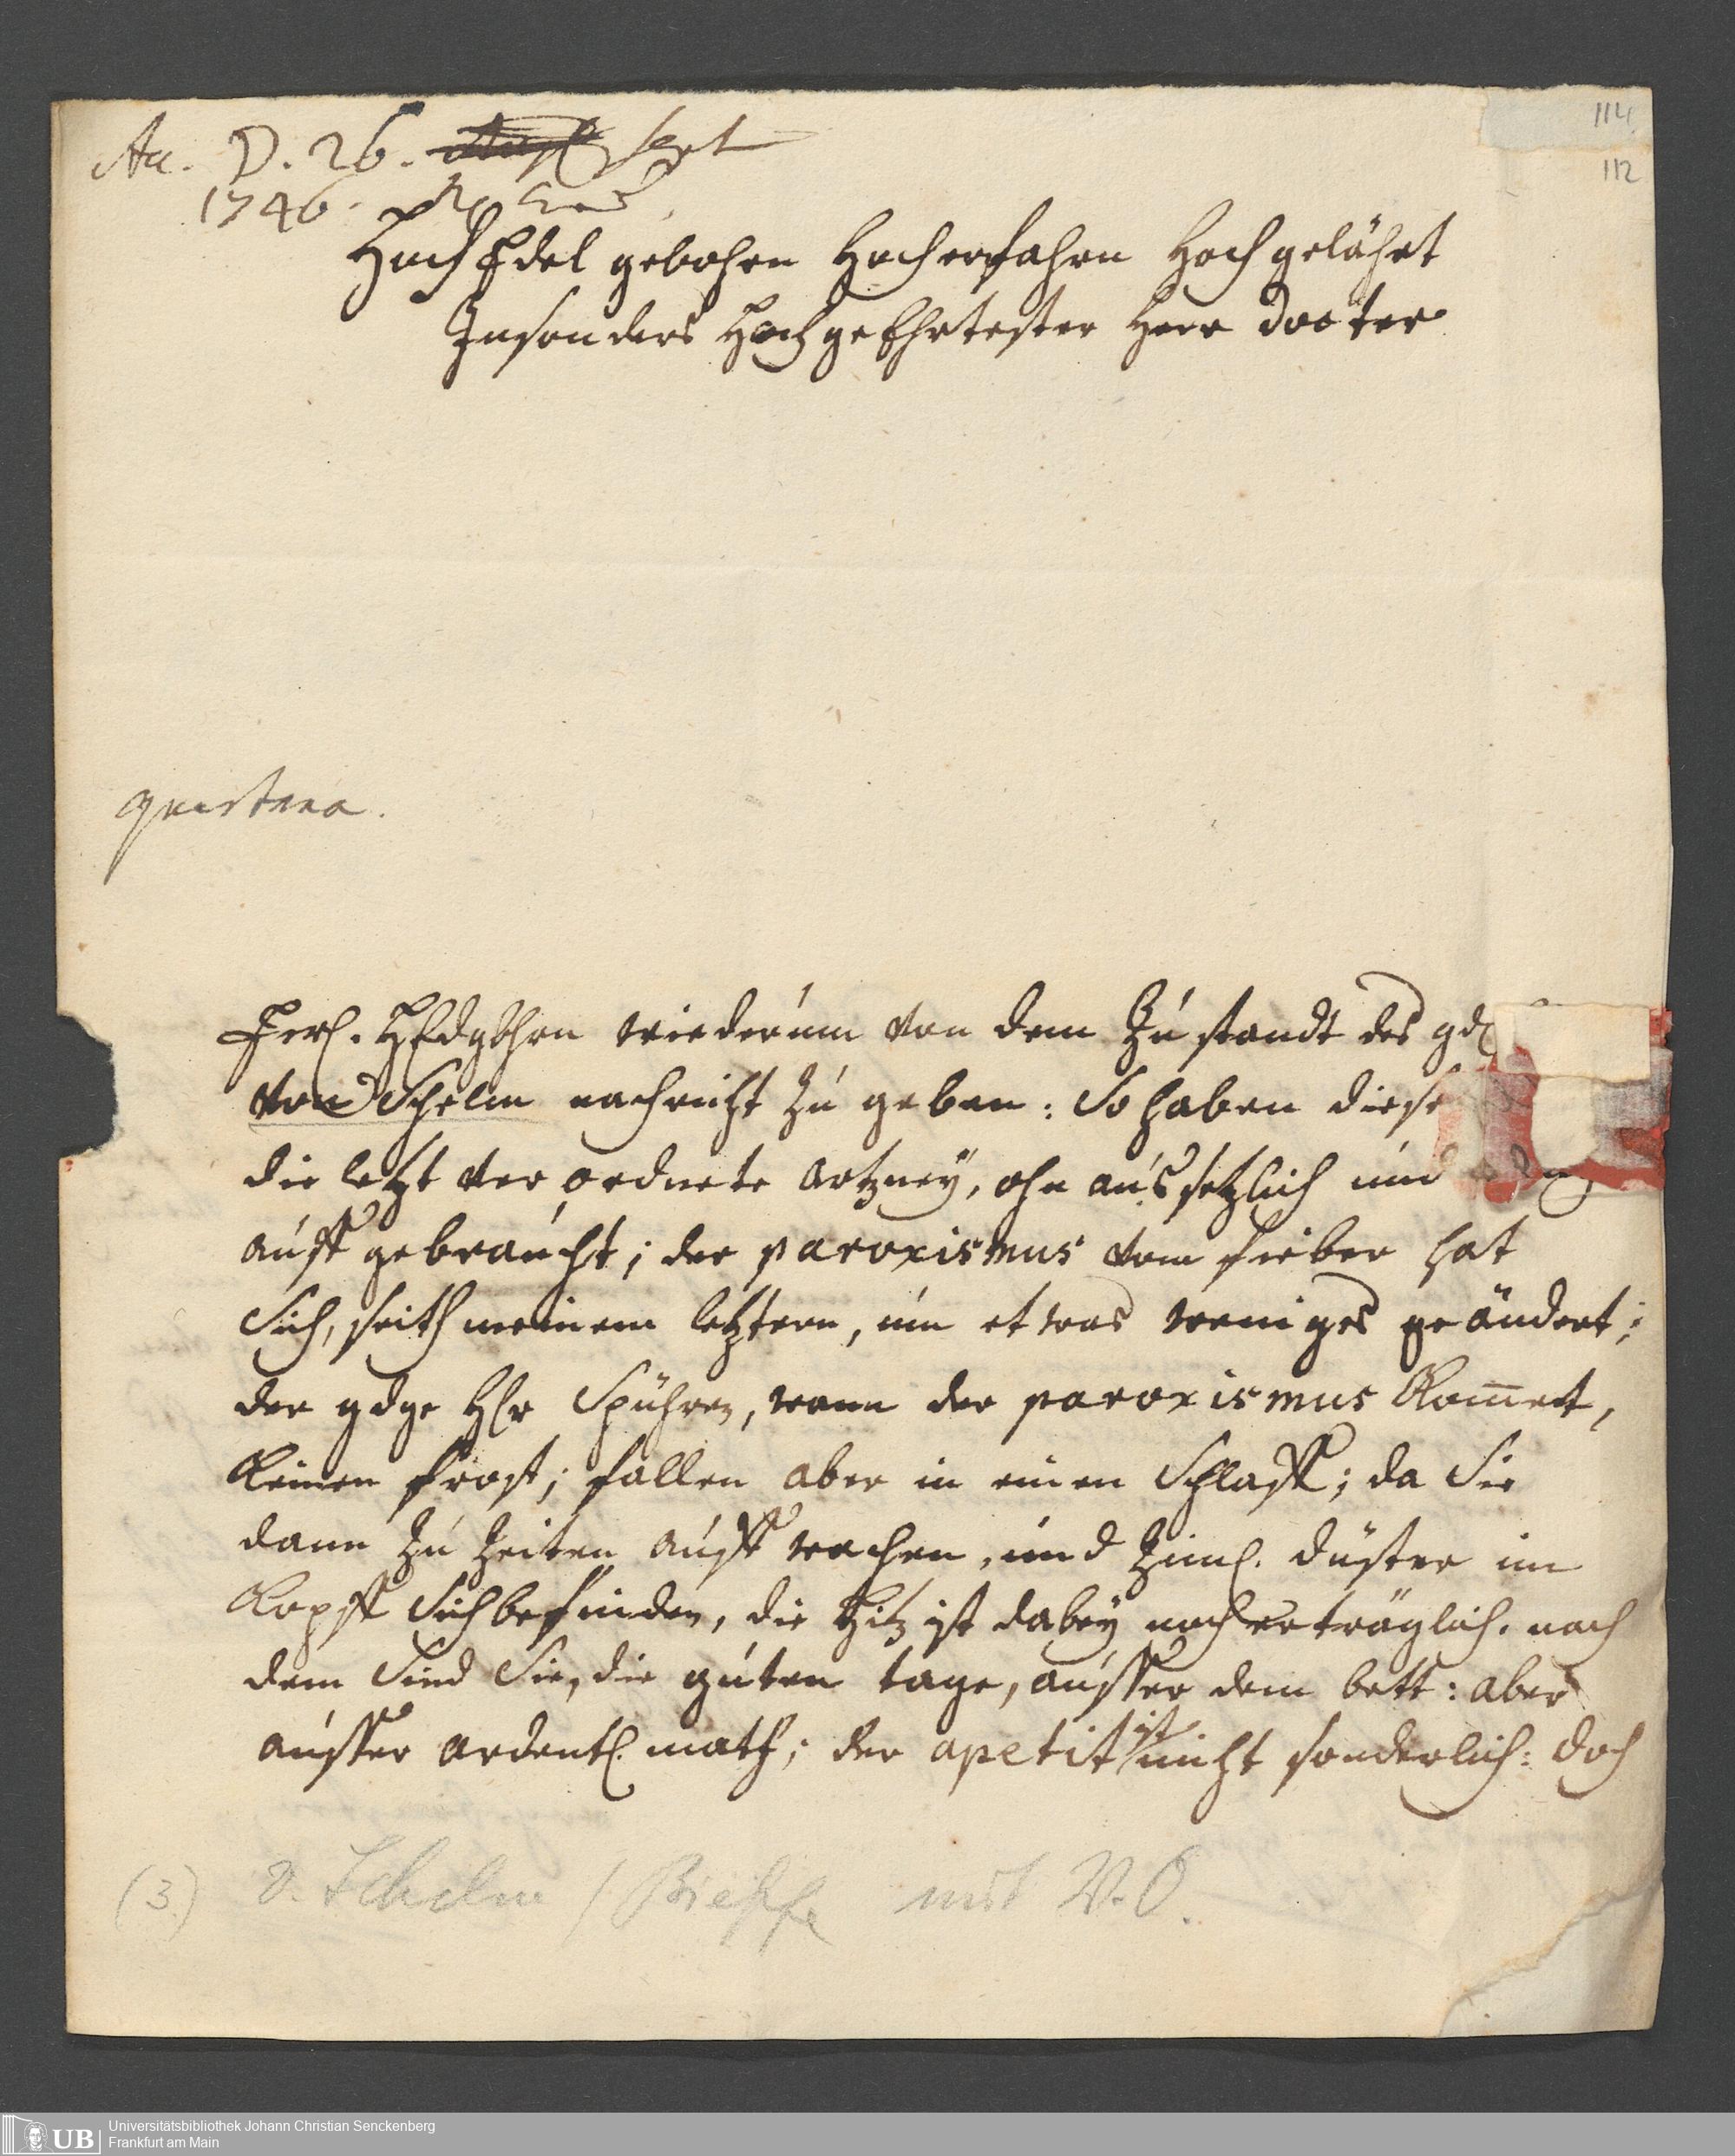 114
112
D. 26. Sept
1746.
HochEdel gebohrn Hocherfahrn Hochgelährt
Insonders HochgeEhrtester Herr Docter
quartana.
Ewl. HEdgbhrn wiederum von dem Zustandt des gdl
von Schelm nachricht Zu geben: So haben diese
die letzt verordnete Artzney, ohn ausßetzlich und
auff gebraucht; der paroxismus vom fieber hat
Sich, seith meinem letztern, um etwas weniges geändert;
der gdge Hr Spühren, wann der paroxismus Kom̄et,
Keinen frost; fallen aber in einen Schlaff; da Sie
dann Zu Zeiten auff wachen, und Ziml. düster im
Kopff Sich befinden, die Hitz ist dabey noch erträglich. nach
dem Sind Sie, die guten tage, ausser dem bett: aber
ausser ordentl. math; der apetit ist nicht sonderlich: doch
(3.) v. Schelm / Bießfe mit V.O.
UB Universitätsbibliothek Johann Christian Senckenberg
Frankfurt am Main